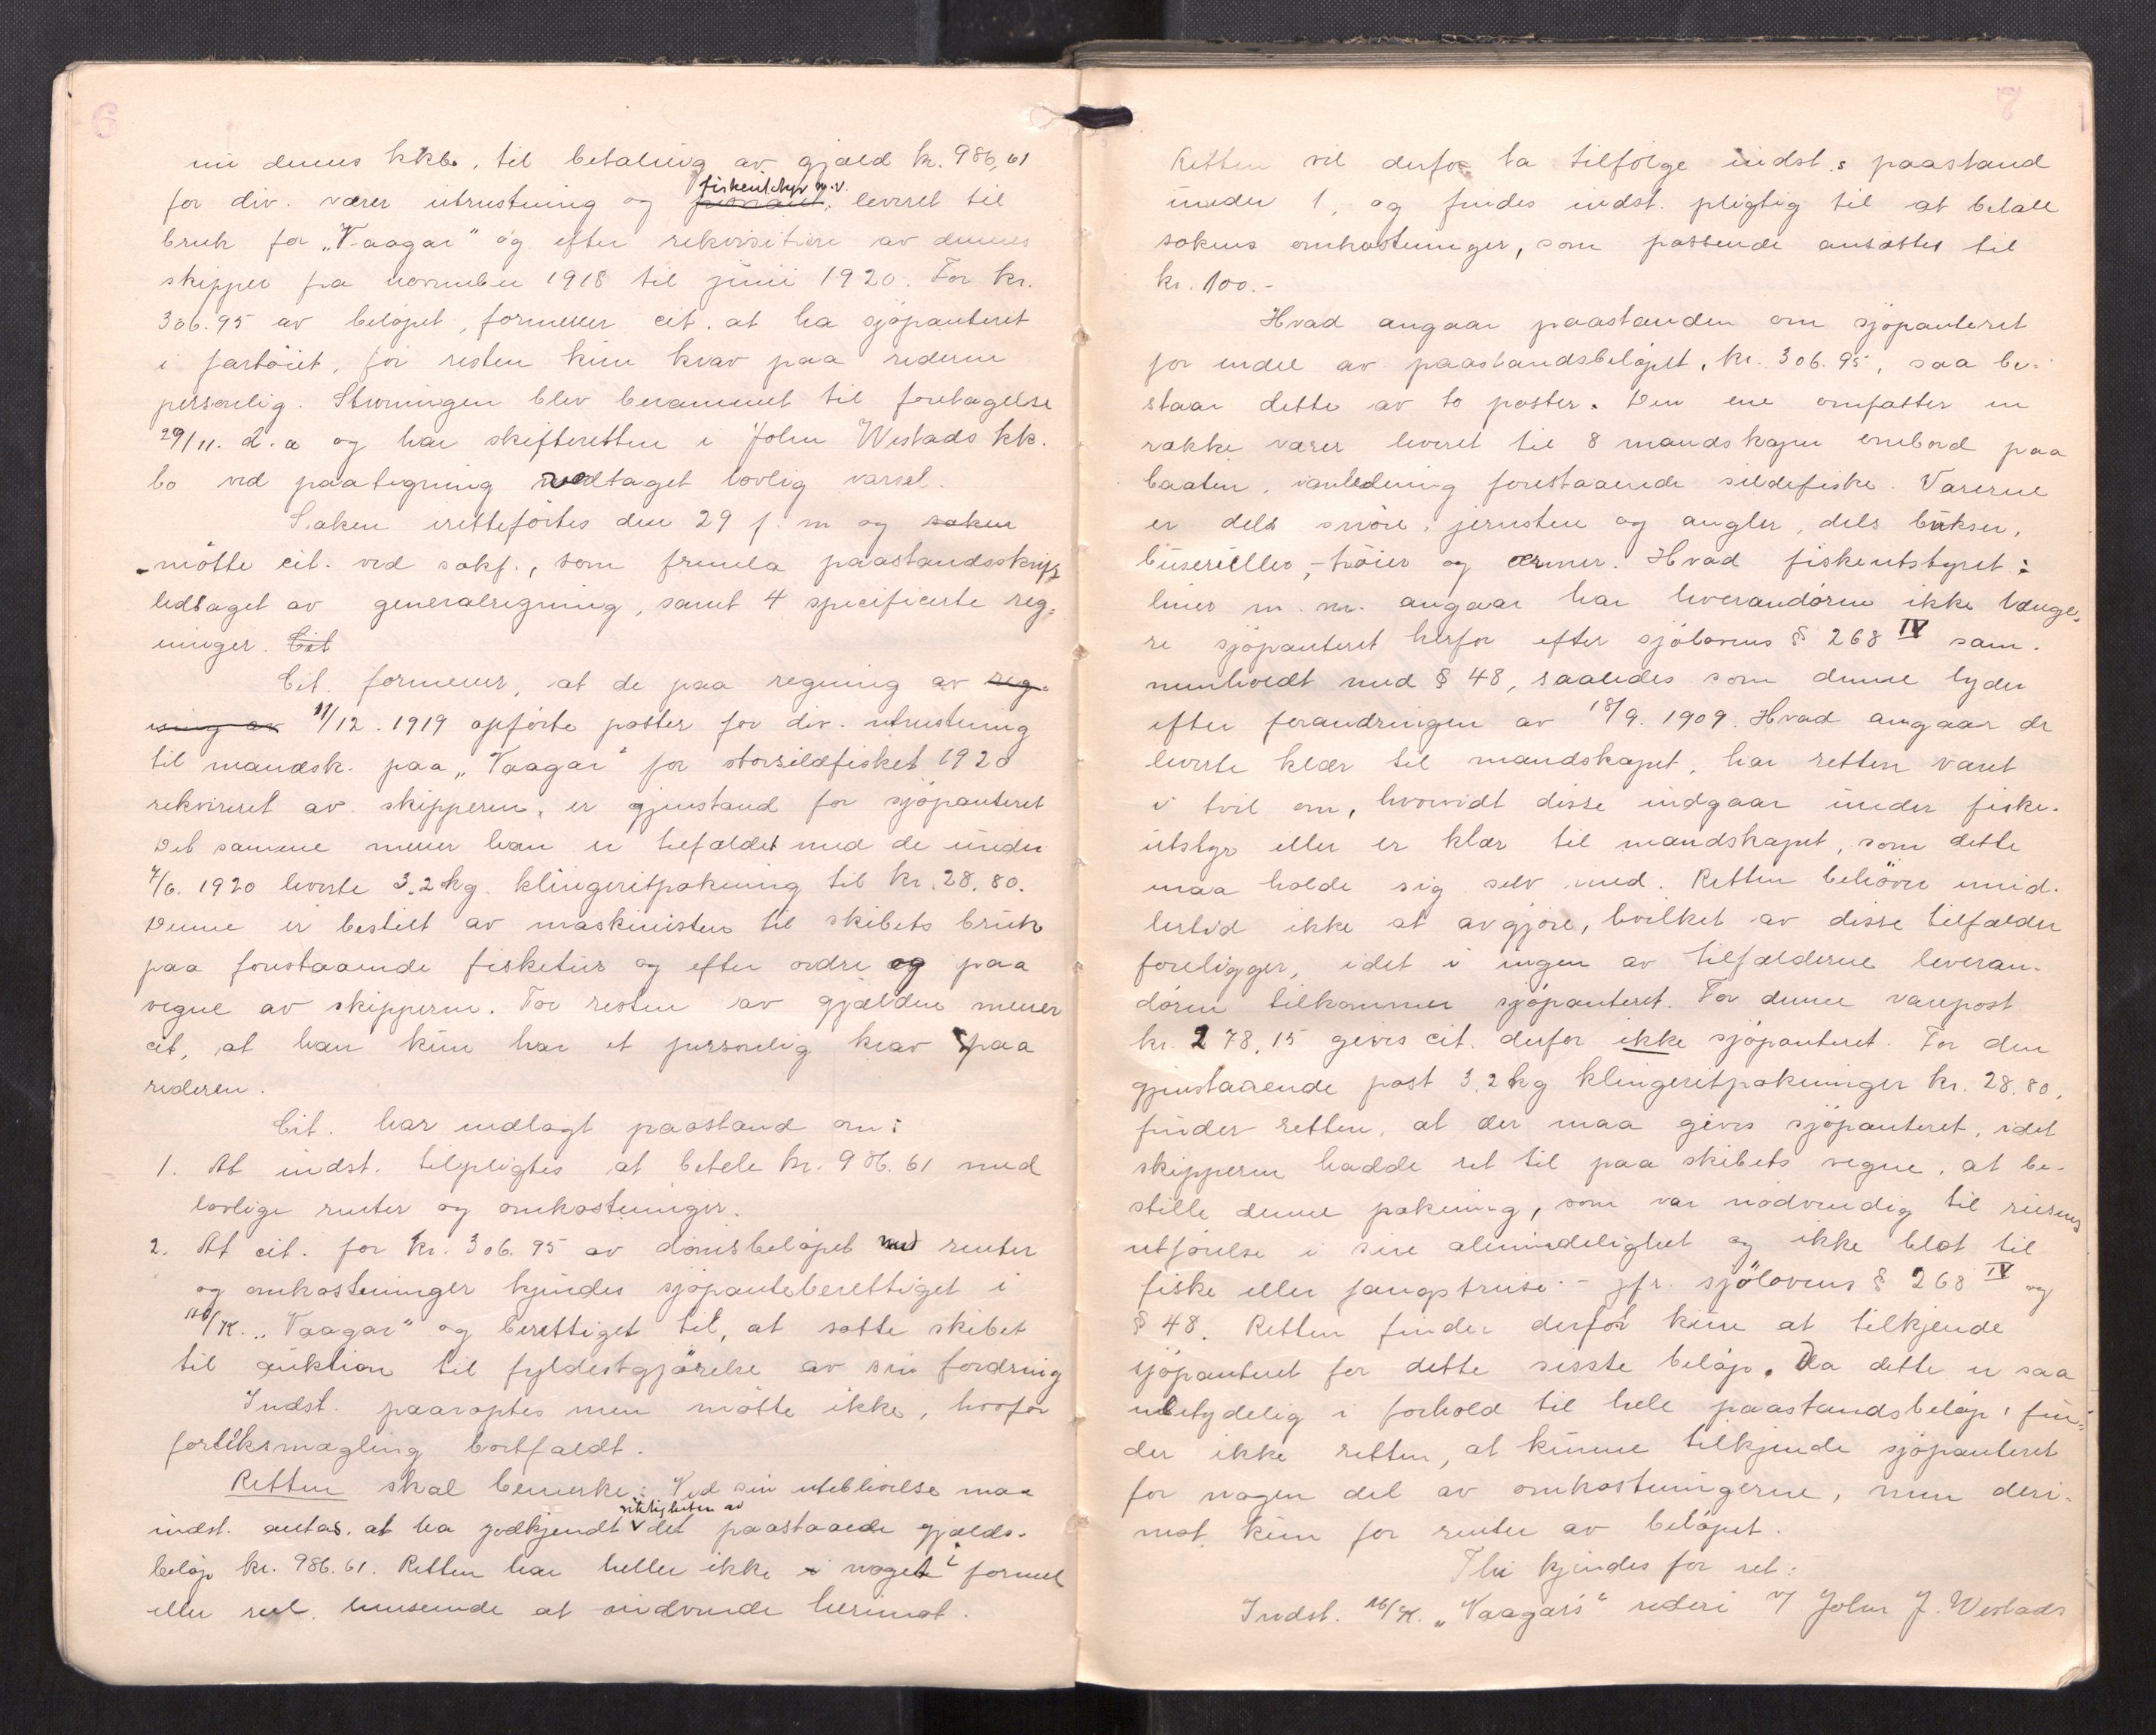 6
nu dennes kkbo, til betaling av gjæld kr. 986,61
fiskeutstyr m.v.
for div. varer utrustning og leveret til
bruk for „Vaagar" og efter rekvisition av dennes
skipper fra november 1918 til juni 1920. For kr.
306.95 av beløpet, formener cit. at ha sjøpanteret
i fartøiet, for resten kun krav paa rederen
personlig. Stevningen blev berammet til foretagelse
29/11. d.a og har skifteretten i John Westads kk.
bo ved paategning vedtaget lovlig varsel.
Saken irettførtes den 29 f. m og saken
møtte cit. ved sakf., som fremla paastandsskrift
ledsaget av generalregning, samt 4 specificerte reg-
ninger. Cit
Cit. formener, at de paa regning av reg-
ning av 11/12. 1919 opførte poster for div. utrustning
til mandsk. paa „Vaagar" for storsildfisket 1920
rekvireret av skipperen, er gjenstand for sjøpanteret
Det samme mener han er tilfældet med de under
7/6. 1920 leverte 3,2 kg. klingeritpakning til kr. 28.80.
Denne er bestilt av maskinisten til skibets bruk
paa forestaaende fisketur og efter ordre og paa
vegne av skipperen. For resten av gjælden mener
cit, at han kun har et personlig krav paa
rederen.
Cit. har nedlagt paastand om:
1. At indst. tilpligtes at betale kr. 986.61 med
lovlige renter og omkostninger.
2. At cit. for kr. 306.95 av domsbeløpet med renter
og omkostninger kjendes sjøpanteberettiget i
M/K. „Vaagar" og berettiget til, at sætte skibet
til auktion til fyldestgjørelse av sin fordring
Indst. paaroptes men møtte ikke, hvorfor
forliksmægling bortfaldt.
Retten skal bemerke: Ved sin uteblivelse maa
riktigheten av
indst. antas at ha godkjendt det paastaaede gjælds-
beløp kr. 986.61. Retten har heller ikke i noget i formel
eller reel henseende at indvende herimot.
7
Retten vil derfor ta tilfølge indst.s paastand
under 1, og findes indst. pligtig til at betale
sakens omkostninger, som passende ansættes til
kr. 100.-
Hvad angaar paastanden om sjøpanteret
for endel av paastandsbeløpet, kr. 306.95, saa be-
staar dette av to poster. Den ene omfatter en
række varer leveret til 8 mandskaper ombord paa
baaten, i anledning forestaaende sildefiske. Varerne
er dels snøre, jernsten og angler, dels bukser,
buseruller, -trøier og ermer. Hvad fiskeutstyret:
liner m.m. angaar har leverandøren ikke længe-
re sjøpanteret herfor efter sjølovens § 268 IV sam-
menholdt med § 48, saaledes som denne lyder
efter forandringen av 18/9. 1909. Hvad angaar de
leverte klær til mandskapet, har retten været
i tvil om, hvorvidt disse indgaar under fiske-
utstyr eller er klær til mandskapet, som dette
maa holde sig selv med. Retten behøver imid-
lertid ikke at avgjøre, hvilket av disse tilfælder
foreligger, idet i ingen av tilfælderne leveran-
døren tilkommer sjøpanteret. For denne varepost
kr. 278,15 gives cit. derfor ikke sjøpanteret. For den
gjenstaaende post 3,2 kg klingeritpakninger kr. 28.80,
finder retten, at der maa gives sjøpanteret, idet
skipperen hadde ret til paa skibets vegne, at be-
stille denne pakning, som var nødvendig til reisens
utførelse i sin almindelighet og ikke blot til
fiske eller fangstreise - jfr. sjølovens § 268 IV og
§ 48. Retten finder derfor kun at tilkjende
sjøpanteret for dette sisste beløp. Da dette er saa
ubetydelig i forhold til hele paastandsbeløp, fin-
der ikke retten, at kunne tilkjende sjøpanteret
for nogen del av omkostningerne, men deri-
mot kun for renter av beløpet.
Thi kjendes for ret:
Indst. M/K. „Vaagar's" rederi v/ John J. Westads